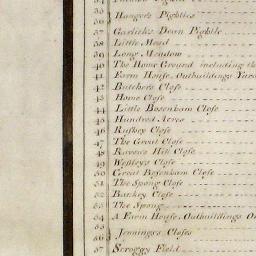 35
36 Hanger's Pightles
37 Garlicks Dean Pightle
38 Little Mead
39 Long Meadow
40 The Home Ground including the
41 Farm House, Outbuildings Yard
42 Butchers Close
43 Home Close
44 Little Bosenham Close
45 Hundred Acres
46 Rushey Close
47 The Great Close
48 Ravens Hill Close
49 Westleys Close
50 Great Bosenham Close
51 The Spong Close
52 Barkey Close
53 The Spong
54 A Farm House, Outbuildings Or
55
56 Jennings Closes
57 Scroggy Field